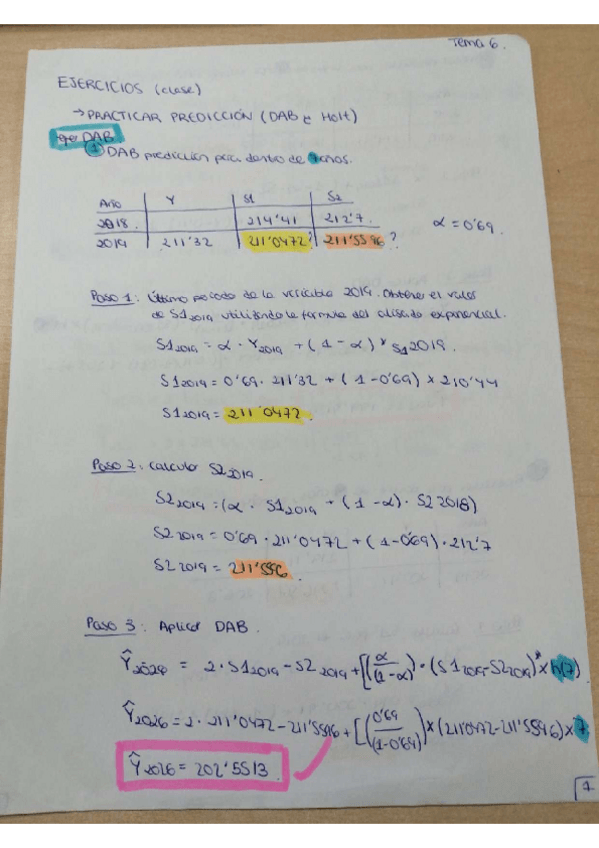 Tema 6.
EJERCICIOS (clase)
→ PRACTICAR PREDICCIÓN (DAB e Holt)
DAB
1 DAB predicción para dentro de 7 años.
Año Y S1 S2
2018. 214'41 212'7.
2019 211'32 211'0472? 211'5596? α = 0'69.
Paso 1: Último periodo de la variable 2019. Obtener el valor
de S1 2019 utilizando la formula del alisado exponencial.
S1 2019 = α · Y2019 + (1 - α) * S1 2019.
S1 2019 = 0'69 · 211'32 + (1 - 0'69) × 210'44
S1 2019 = 211'0472.
Paso 2: Calcular S2 2019.
S2 2019 = (α · S1 2019 + (1 - α) · S2 2018)
S2 2019 = 0'69 · 211'0472 + (1 - 0'69) · 212'7
S2 2019 = 211'5596.
Paso 3: Aplicar DAB.
Ŷ2026 = 2 · S1 2019 - S2 2019 + [(α/(1-α)) · (S1 2019 - S2 2019)] * h(7)
Ŷ2026 = 2 · 211'0472 - 211'5596 + [(0'69/(1-0'69)] × (211'0472 - 211'5596) × 7
Ŷ2026 = 202'5513.
1